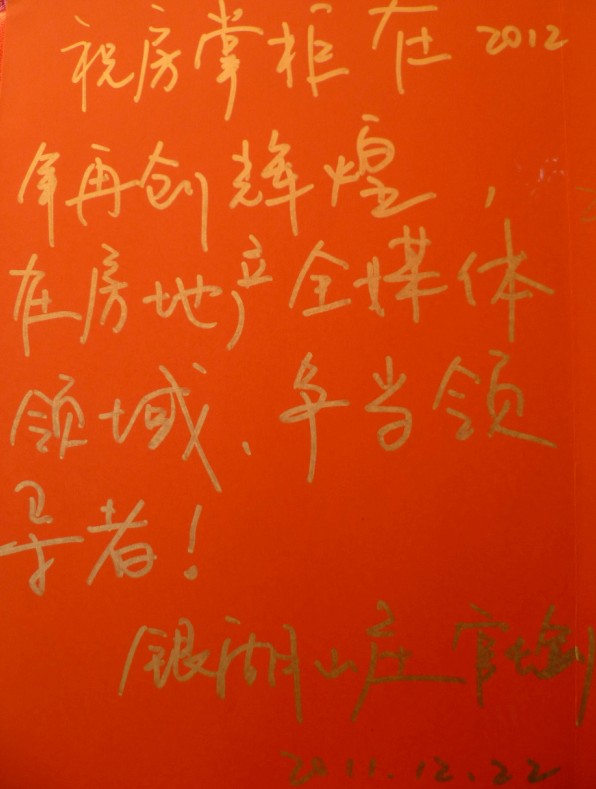 祝房掌柜在2012
年再创辉煌，
在房地产全媒体
领域、争当领
导者！
银湖山庄
2011.12.22